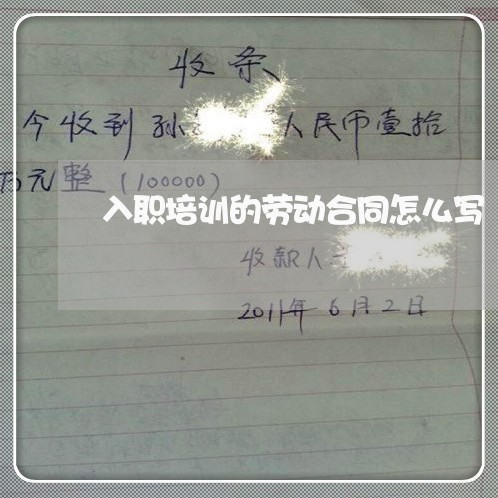 收条
今收到孙 人民币壹拾
万元整(100000)
入职培训的劳动合同怎么写
收款人
2011年6月2日